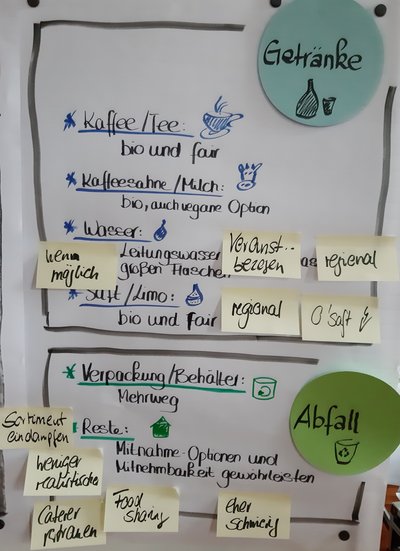 Getränke
* Kaffee/Tee:
bio und fair
* Kaffeesahne/Milch:
bio, auch vegane Option
* Wasser:
Leitungswasser
großen Flaschen
as
wenn
möglich
Veranst.-
bezogen
regional
* Saft/Limo:
bio und fair
regional
O'Saft
* Verpackung/Behälter:
Mehrweg
Abfall
Sortiment
eindampfen
* Reste:
Mitnahme-Optionen und
Mitnehmbarkeit gewährleisten
weniger
realistische
Caterer
Food
sharing
eher
schwierig